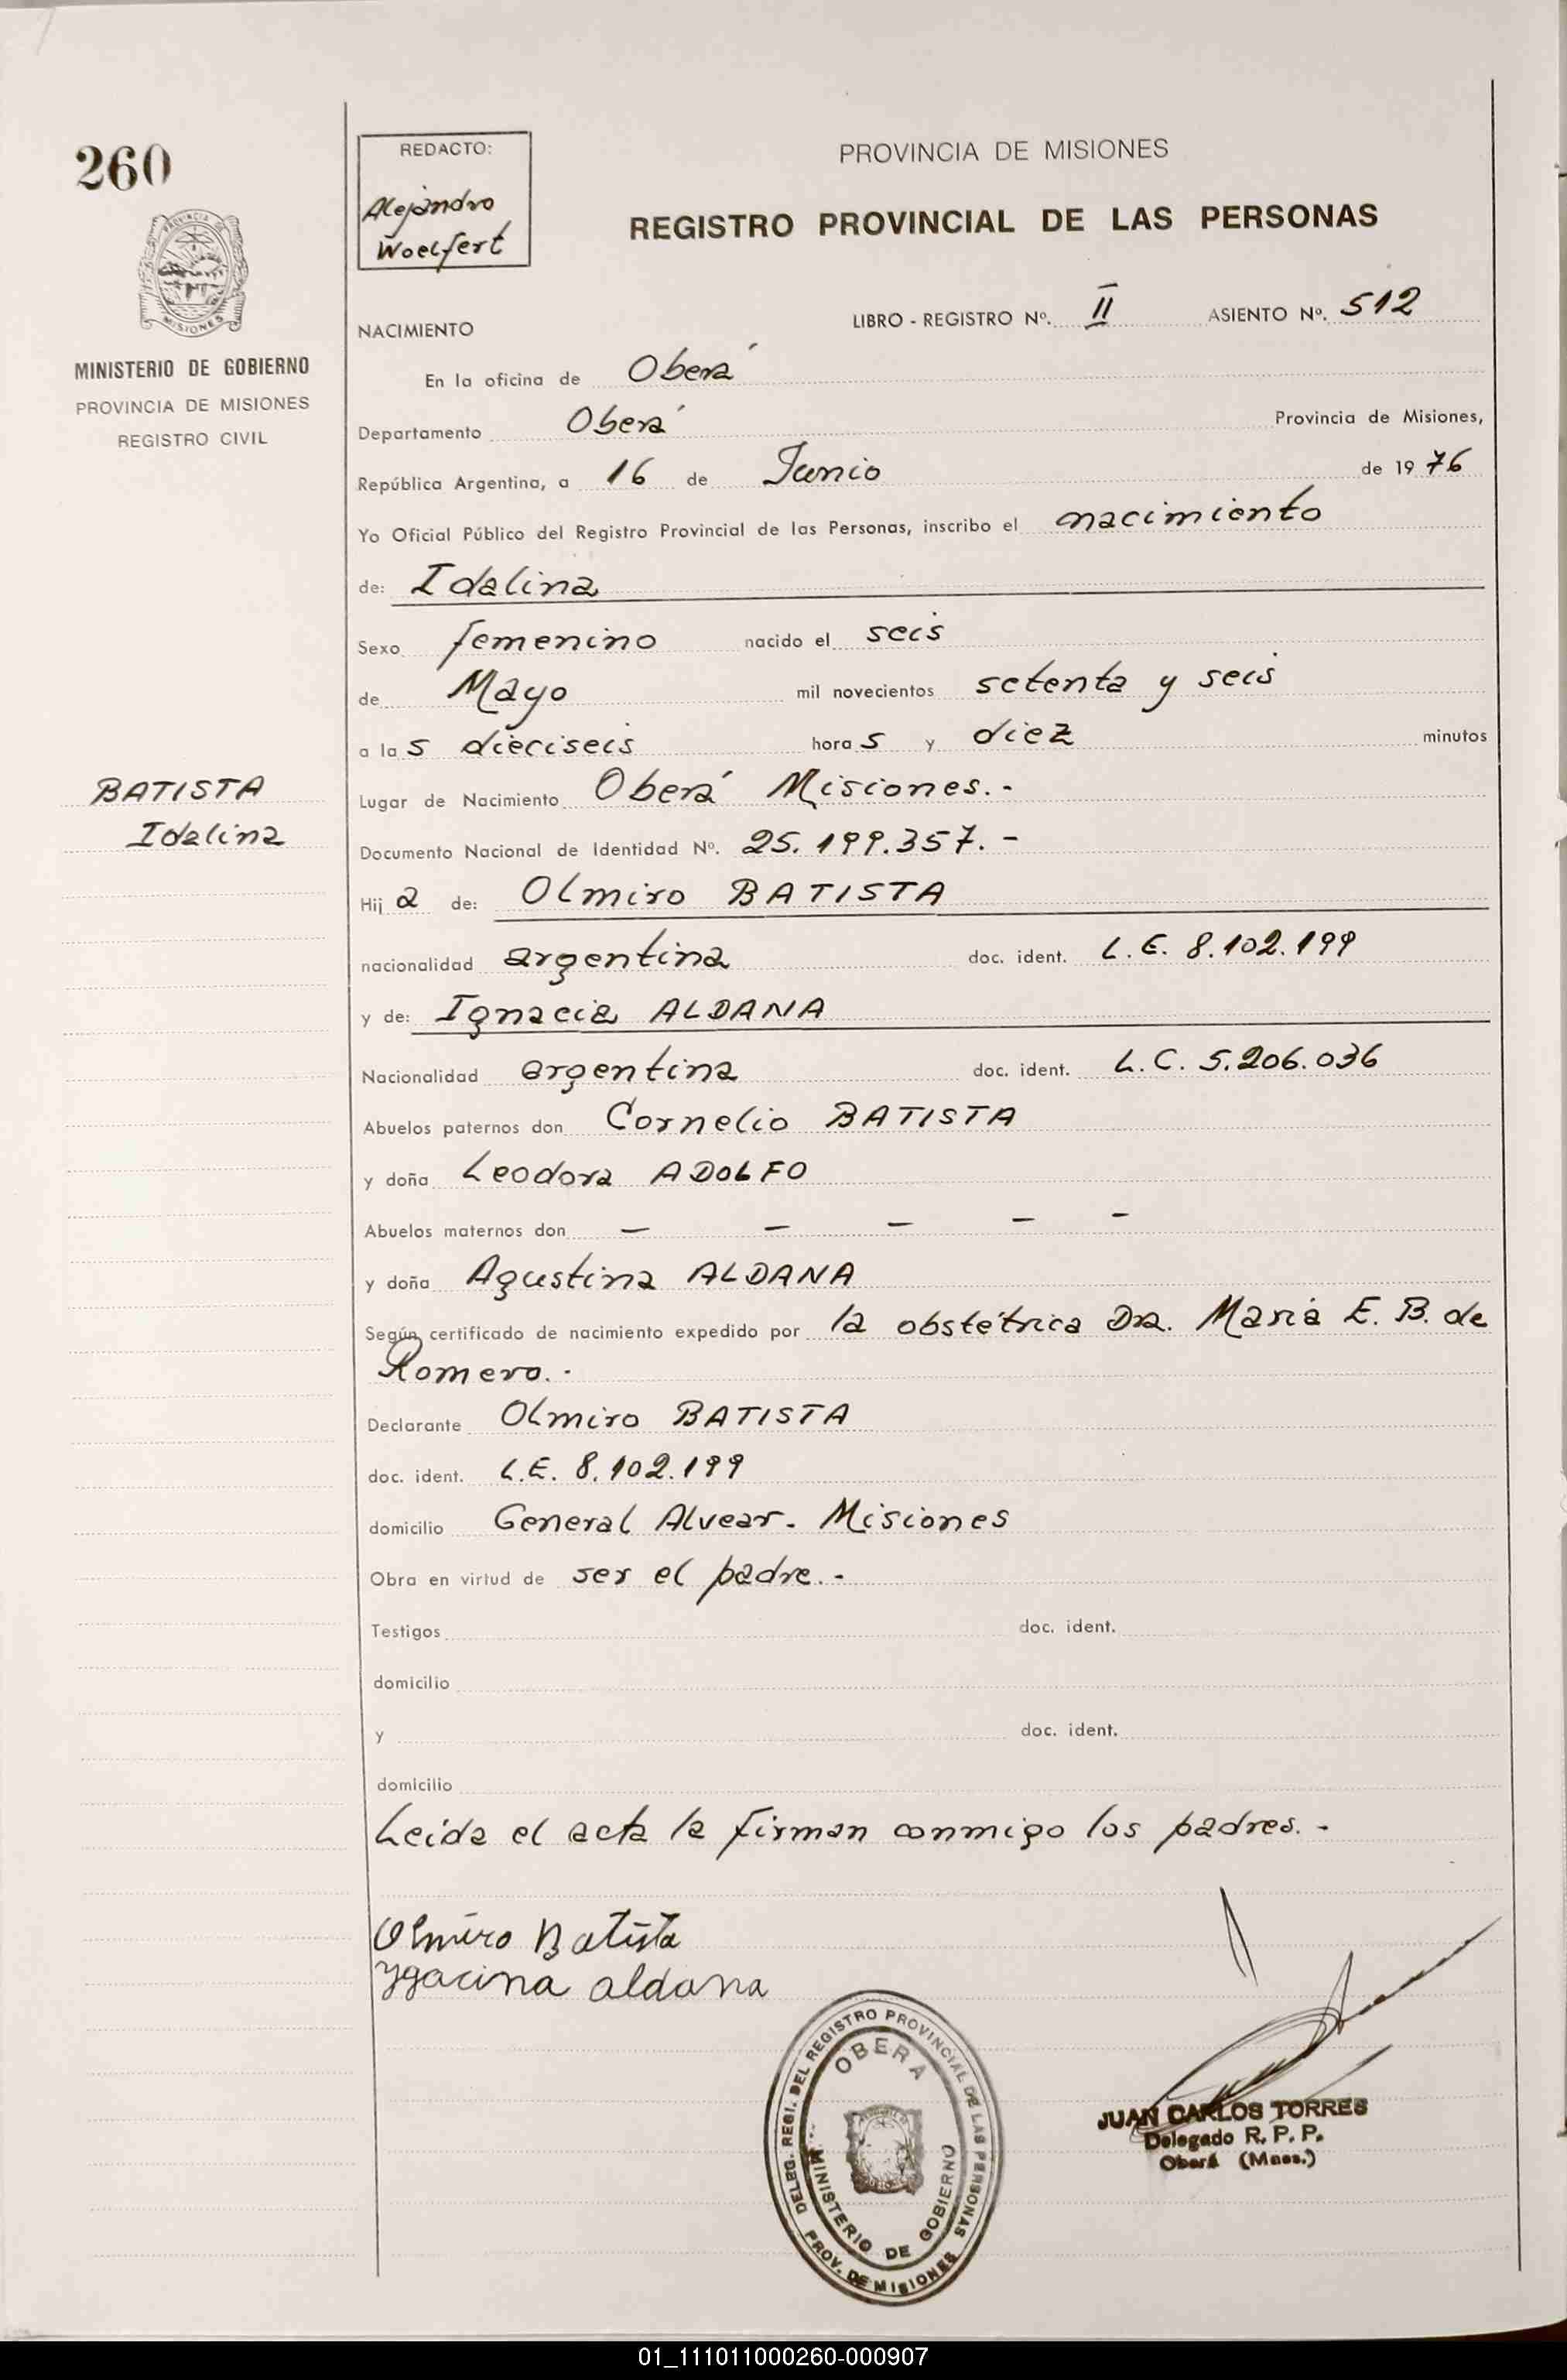 260
REDACTO:
Alejandro
Woelfert
PROVINCIA DE MISIONES
REGISTRO PROVINCIAL DE LAS PERSONAS
PROVINCIA
MISIONES
MINISTERIO DE GOBIERNO
PROVINCIA DE MISIONES
REGISTRO CIVIL
NACIMIENTO LIBRO - REGISTRO Nº. II ASIENTO Nº. 512
En la oficina de Oberá
Departamento Oberá Provincia de Misiones,
República Argentina, a 16 de Junio de 19 76
Yo Oficial Público del Registro Provincial de las Personas, inscribo el nacimiento
de: Idalina
Sexo femenino nacido el seis
de Mayo mil novecientos setenta y seis
a la s dieciseis hora s y diez minutos
BATISTA
Idalina
Lugar de Nacimiento Oberá Misiones.-
Documento Nacional de Identidad Nº. 25.199.357.-
Hij a de: Olmiro BATISTA
nacionalidad argentina doc. ident. L.E. 8.102.199
y de: Ignacia ALDANA
Nacionalidad argentina doc. ident. L.C. 5.206.036
Abuelos paternos don Cornelio BATISTA
y doña Leodora ADOLFO
Abuelos maternos don - - - - -
y doña Agustina ALDANA
Según certificado de nacimiento expedido por la obstétrica Dra. María E. B. de
Romero.-
Declarante Olmiro BATISTA
doc. ident. L.E. 8.102.199
domicilio General Alvear. Misiones
Obra en virtud de ser el padre.-
Testigos doc. ident.
domicilio
y doc. ident.
domicilio
Leída el acta la firman conmigo los padres.-
Olmiro Batista
Ygacina aldana
DELEG. REGI. DEL REGISTRO PROVINCIAL DE LAS PERSONAS
OBERA
MINISTERIO DE GOBIERNO
PROV. DE MISIONES
JUAN CARLOS TORRES
Delegado R. P. P.
Oberá (Mnes.)
01_111011000260-000907